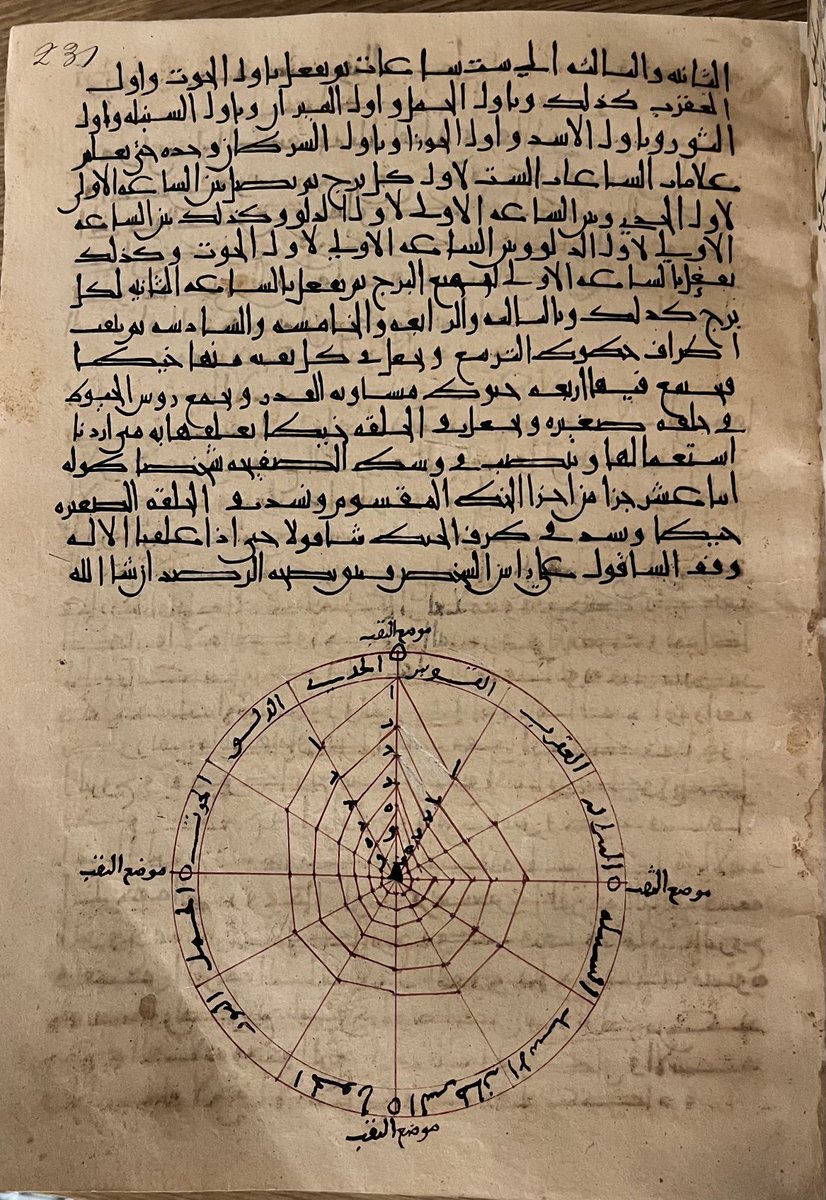 231
الثانيه والثالثه الي ست ساعات ثم يفعل باول الحوت واول
العقرب كذلك وباول الحمل واول الميزان وباول السنبله واول
الثور وباول الاسد واول الجوزا وباول السرطان وحده حتى يعلم
علامات الساعات الست لاول كل برج ثم يصل من الساعه الاولى
لاول الجدي ومن الساعه الاولى لاول الدلو وكذلك من الساعه
الاولي لاول الدلو ومن الساعه الاولي لاول الحوت وكذلك
يفعل بالساعه الاولى لجميع البرج ثم يفعل بالساعه الثانيه لكل
برج كذلك وبالثالثه والرابعه والخامسه والسادسه ثم يثقب
اطراف خطوط التربيع ويجعل في كل ثقبه منها خيطا
فيجتمع فيها اربعه خيوط مساويه القدر ويجمع روس الخيوط
في حلقه صغيره ويجعل في الحلقه خيطا يعلقها به متى اردنا
استعمالها وينصب في وسط الصفيحه شخصا طوله
اثنا عشر جزا من اجزا الخط المقسوم ونشد في الحلقه الصغيره
خيطا ونشد في طرف الخيط شاقولا حتى اذا علقنا الاله
وقف الشاقول على راس الشخص فهو يصحه الرصد ان شا الله
موضع الثقب
القوس
الجدي
العقرب
الدلو
الميزان
الحوت
موضع الثقب
موضع الثقب
الحمل
السنبله
الثور
الاسد
الجوزا
السرطان
موضع الثقب